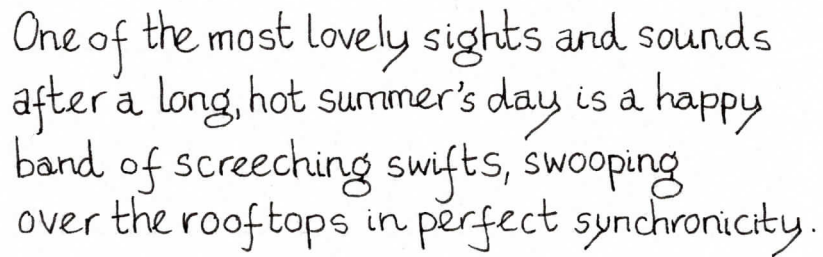 One of the most lovely sights and sounds
after a long, hot summer's day is a happy
band of screeching swifts, swooping
over the rooftops in perfect synchronicity.